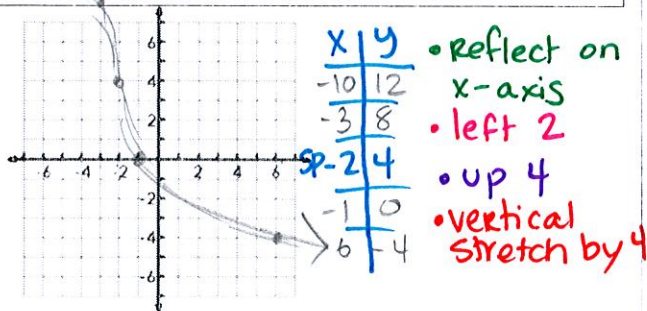 6
4
2
-6 -4 -2 2 4 6
-2
-4
-6
x y
-10 12
-3 8
SP -2 4
-1 0
6 -4
• Reflect on
x-axis
• left 2
• up 4
• vertical
stretch by 4